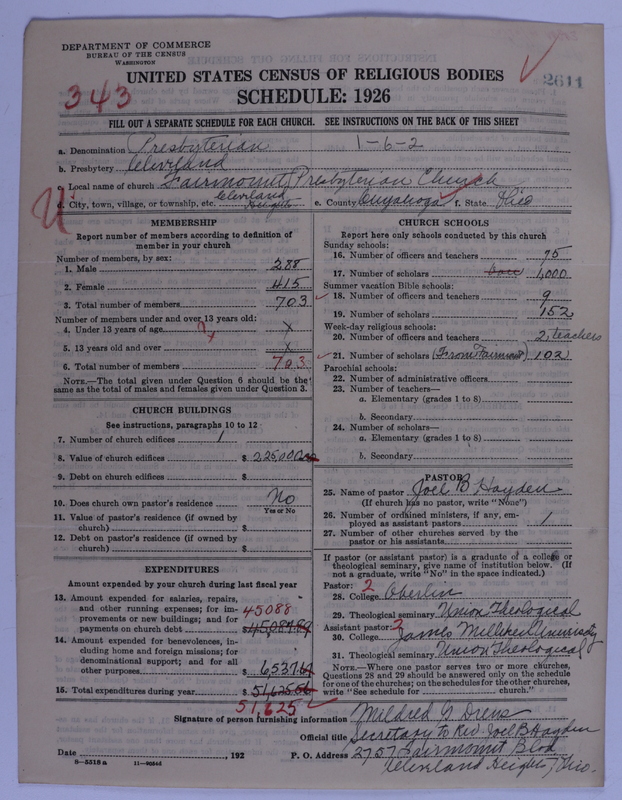 DEPARTMENT OF COMMERCE
BUREAU OF THE CENSUS
WASHINGTON
2611
UNITED STATES CENSUS OF RELIGIOUS BODIES
343
SCHEDULE: 1926
FILL OUT A SEPARATE SCHEDULE FOR EACH CHURCH. SEE INSTRUCTIONS ON THE BACK OF THIS SHEET
a. Denomination Presbyterian 1-6-2
b. Presbytery Cleveland
c. Local name of church Fairmount Presbyterian Church
d. City, town, village, or township, etc. Cleveland Heights e. County Cuyahoga f. State Ohio
MEMBERSHIP
Report number of members according to definition of
member in your church
Number of members, by sex:
1. Male 288
2. Female 415
3. Total number of members 703
Number of members under and over 13 years old:
4. Under 13 years of age x
5. 13 years old and over x
6. Total number of members 703
NOTE.—The total given under Question 6 should be the
same as the total of males and females given under Question 3.
CHURCH BUILDINGS
See instructions, paragraphs 10 to 12
7. Number of church edifices 1
8. Value of church edifices $ 225,000
9. Debt on church edifices $
10. Does church own pastor's residence No
Yes or No
11. Value of pastor's residence (if owned by
church) $
12. Debt on pastor's residence (if owned by
church) $
EXPENDITURES
Amount expended by your church during last fiscal year
13. Amount expended for salaries, repairs,
and other running expenses; for im- 45088
provements or new buildings; and for
payments on church debt $
14. Amount expended for benevolences, in-
cluding home and foreign missions; for
denominational support; and for all
other purposes $ 6,537.67
15. Total expenditures during year $
51,625
CHURCH SCHOOLS
Report here only schools conducted by this church
Sunday schools:
16. Number of officers and teachers 75
17. Number of scholars 1,000
Summer vacation Bible schools:
18. Number of officers and teachers 9
19. Number of scholars 152
Week-day religious schools:
20. Number of officers and teachers 2, teachers
21. Number of scholars (From Fairmount) 102
Parochial schools:
22. Number of administrative officers
23. Number of teachers—
a. Elementary (grades 1 to 8)
b. Secondary
24. Number of scholars—
a. Elementary (grades 1 to 8)
b. Secondary
PASTOR
25. Name of pastor Joel B Hayden
(If church has no pastor, write "None")
26. Number of ordained ministers, if any, em-
ployed as assistant pastors 1
27. Number of other churches served by the
pastor or his assistants
If pastor (or assistant pastor) is a graduate of a college or
theological seminary, give name of institution below. (If
not a graduate, write "No" in the space indicated.)
Pastor: 2
28. College Oberlin
29. Theological seminary Union Theological
Assistant pastor: 2
30. College James Milliken University
31. Theological seminary Union Theological
NOTE.—Where one pastor serves two or more churches,
Questions 28 and 29 should be answered only on the schedule
for one of the churches; on the schedules for the other churches,
write "See schedule for ........ church."
Signature of person furnishing information Mildred G Drews
Official title Secretary to Rev. Joel B Hayden
Date , 192 P. O. Address 2757 Fairmount Blvd
8—5518a 11—90544 Cleveland Heights, Ohio.